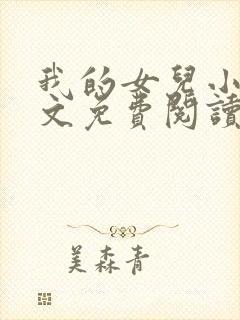 我的女兒小
文免費閱讀
美森青